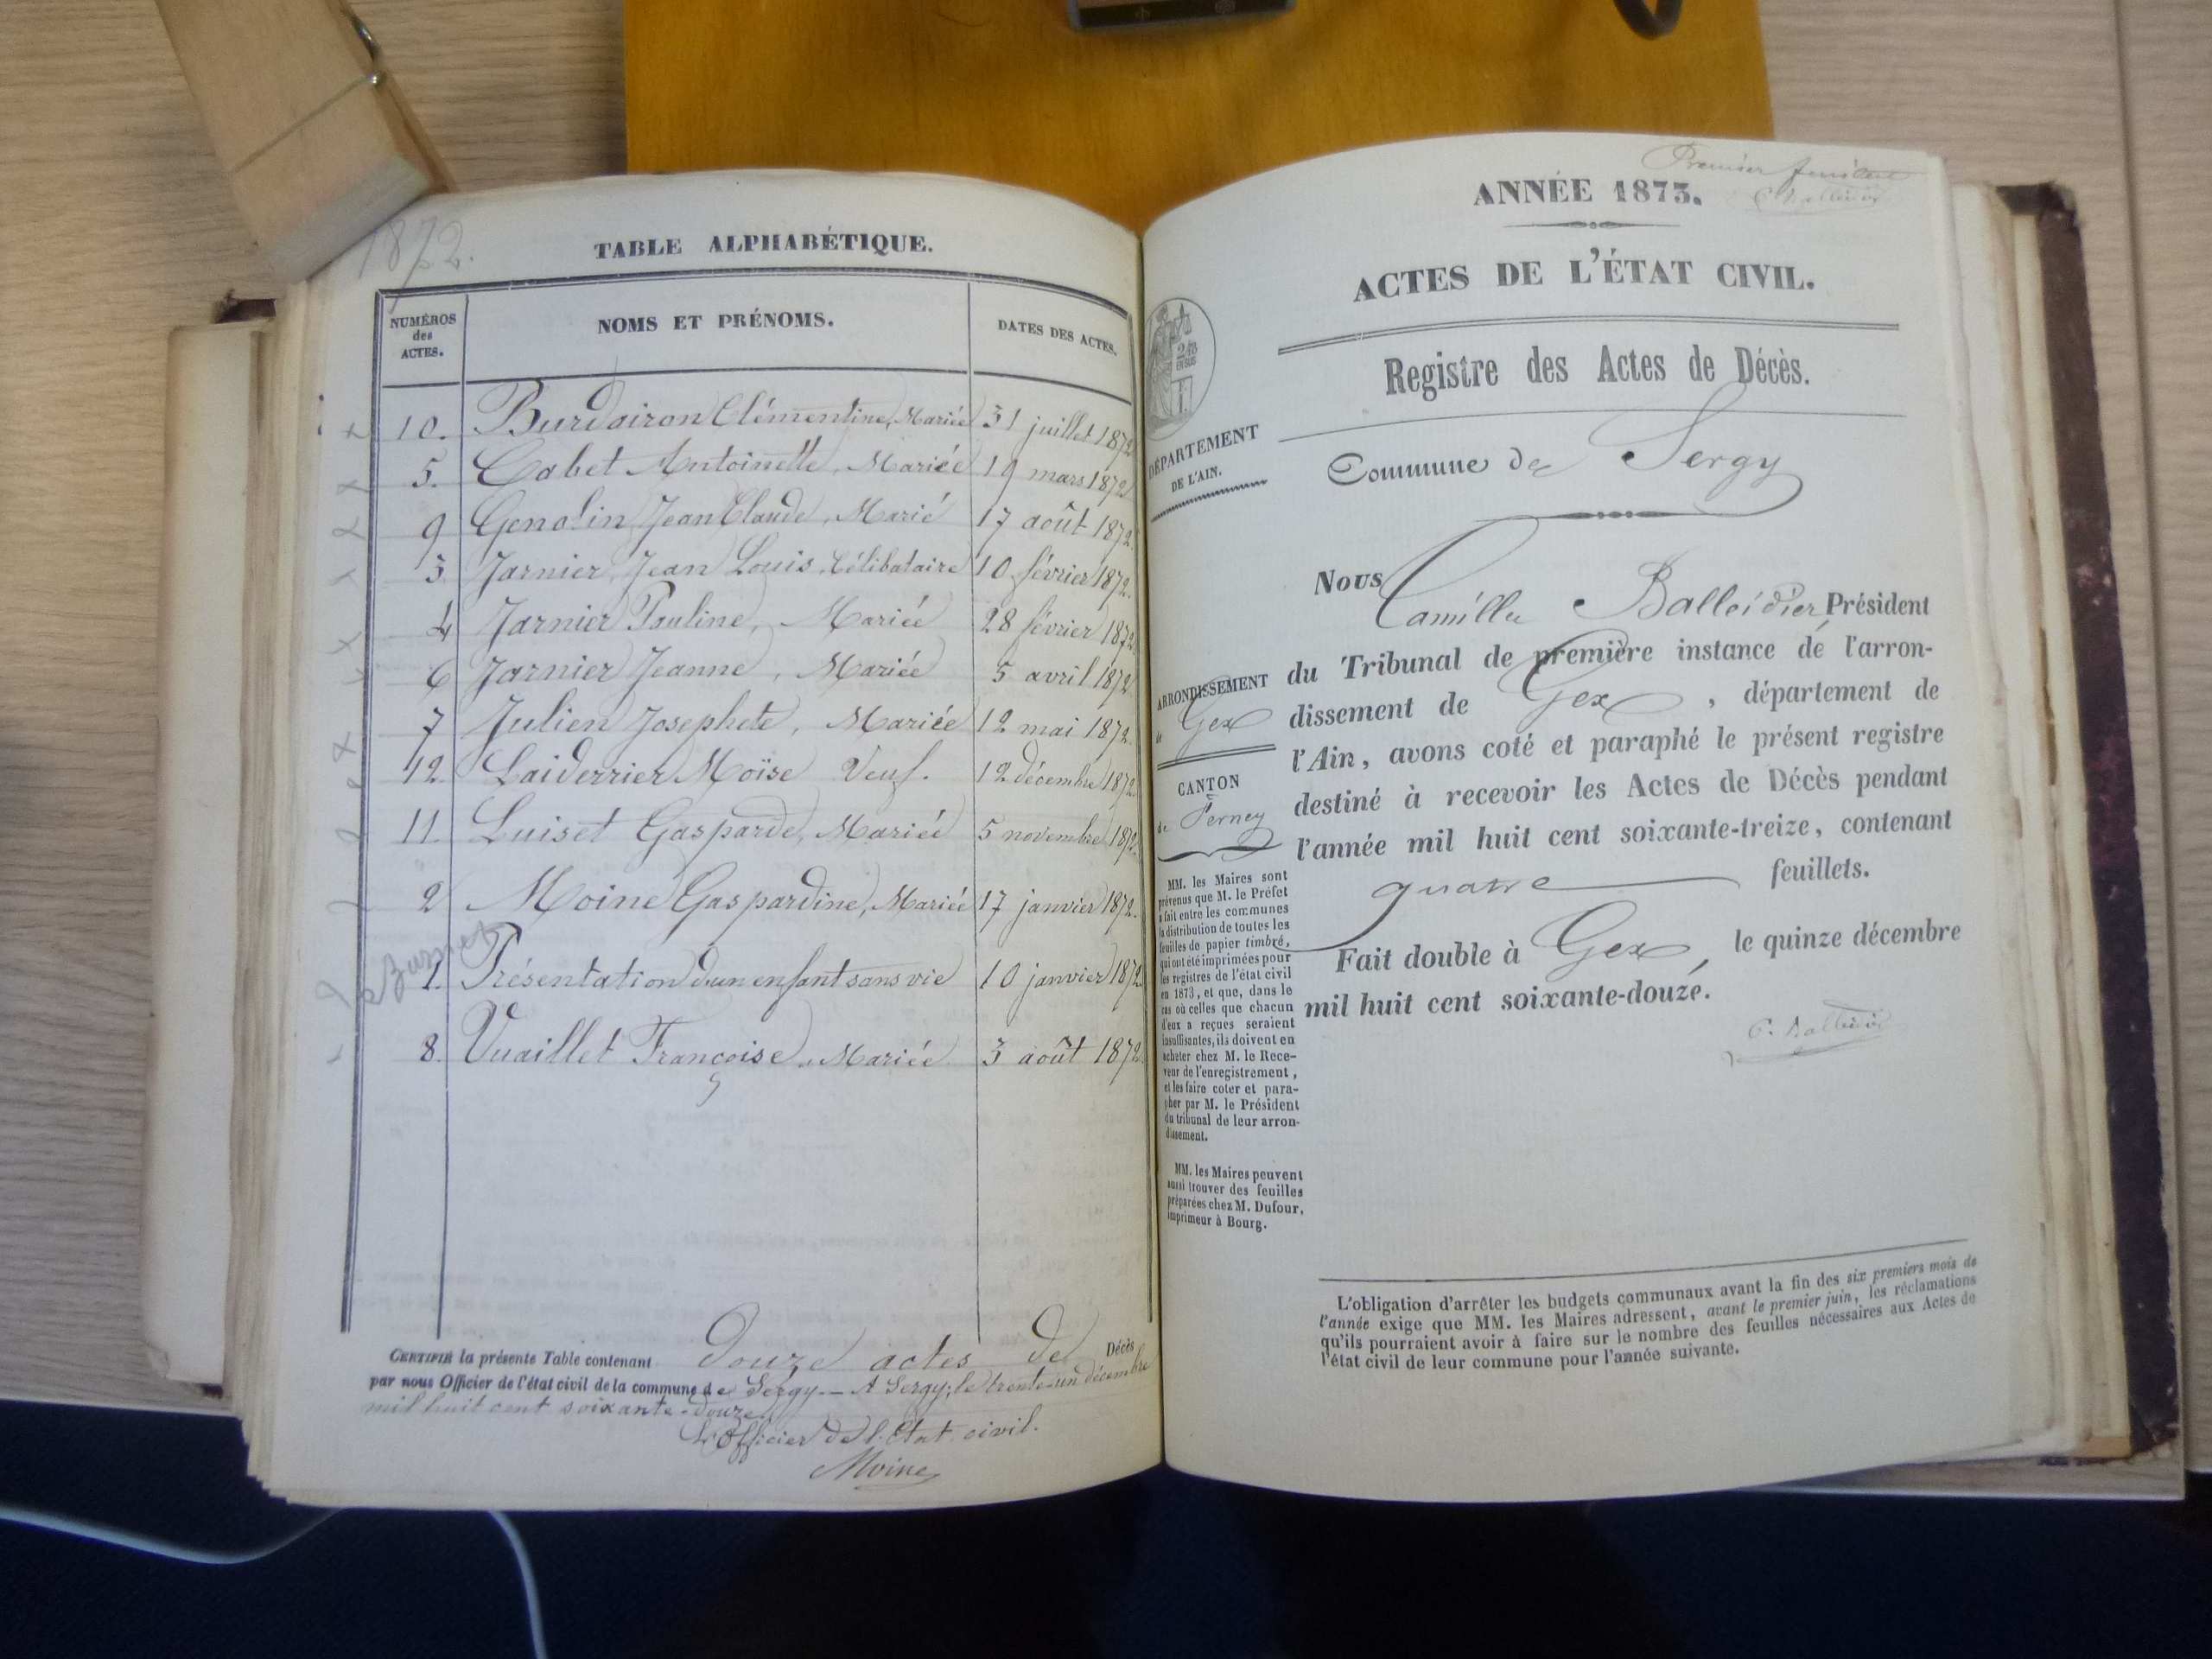 1872.
TABLE ALPHABÉTIQUE.
NUMÉROS des ACTES. NOMS ET PRÉNOMS. DATES DES ACTES.
10. Burdairon Clémentine, Mariée 31 juillet 1872
5. Cabet Antoinette, Mariée 19 mars 1872
9 Genolin Jean Claude, Marié 17 août 1872.
3 Jarnier Jean Louis, Célibataire 10 février 1872.
4 Jarnier Pauline, Mariée 28 février 1872
6 Jarnier Jeanne, Mariée 5 avril 1872
7 Julien Josephete, Mariée 12 mai 1872.
12. Laiderrier Moïse Veuf. 12 décembre 1872
11. Luiset Gasparde, Mariée 5 novembre 1872.
2 Moine Gaspardine, Mariée 17 janvier 1872.
1. Présentation d'un enfant sans vie 10 janvier 1872
8. Vuaillet Françoise, Mariée 3 août 1872.
CERTIFIÉ la présente Table contenant douze actes de Décès
par nous Officier de l'état civil de la commune de Sergy. — A Sergy, le trente-un décembre
mil huit cent soixante-douze.
L'Officier de l'État civil.
Moine
Premier feuillet
ANNÉE 1873.
ACTES DE L'ÉTAT CIVIL.
Registre des Actes de Décès.
DÉPARTEMENT
DE L'AIN.
Commune de Sergy
Nous Camille Balleidier, Président
du Tribunal de première instance de l'arron-
dissement de Gex, département de
l'Ain, avons coté et paraphé le présent registre
destiné à recevoir les Actes de Décès pendant
l'année mil huit cent soixante-treize, contenant
quatre feuillets.
Fait double à Gex, le quinze décembre
mil huit cent soixante-douze.
C. Balleidier
ARRONDISSEMENT
de Gex
CANTON
de Ferney
MM. les Maires sont
prévenus que M. le Préfet
a fait entre les communes
la distribution de toutes les
feuilles de papier timbré,
qui ont été imprimées pour
les registres de l'état civil
en 1873, et que, dans le
cas où celles que chacun
d'eux a reçues seraient
insuffisantes, ils doivent en
acheter chez M. le Rece-
veur de l'enregistrement,
et les faire coter et para-
pher par M. le Président
du tribunal de leur arron-
dissement.
MM. les Maires peuvent
aussi trouver des feuilles
préparées chez M. Dufour,
imprimeur à Bourg.
L'obligation d'arrêter les budgets communaux avant la fin des six premiers mois de
l'année exige que MM. les Maires adressent, avant le premier juin, les réclamations
qu'ils pourraient avoir à faire sur le nombre des feuilles nécessaires aux Actes de
l'état civil de leur commune pour l'année suivante.